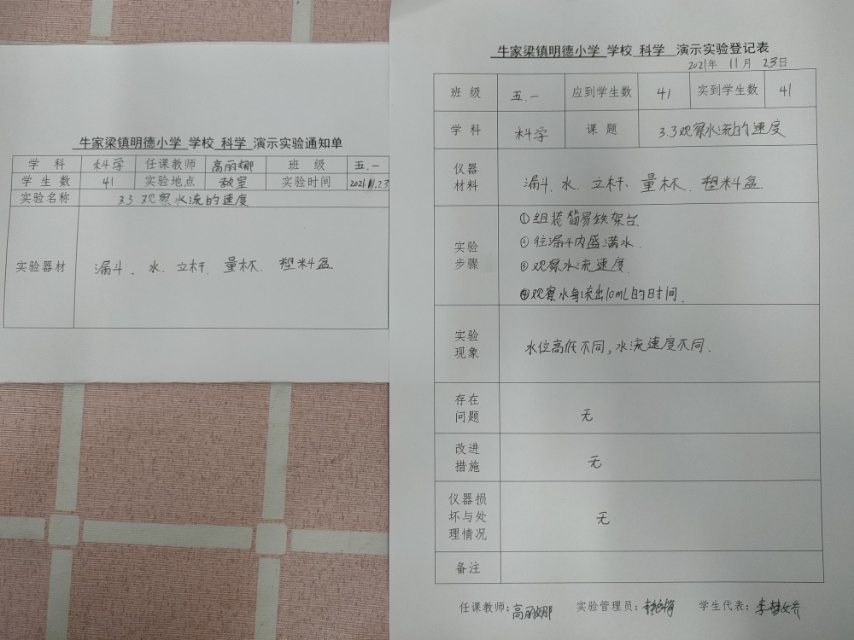 牛家梁镇明德小学 学校 科学 演示实验通知单
学 科 科学 任课教师 高丽娜 班 级 五.一
学 生 数 41 实验地点 教室 实验时间 2021.11.23
实验名称 3.3 观察水流的速度
实验器材 漏斗、水、立杆、量杯、塑料盆
牛家梁镇明德小学 学校 科学 演示实验登记表
2021年 11月 23日
班 级 五.一 应到学生数 41 实到学生数 41
学 科 科学 课 题 3.3观察水流的速度
仪器
材料
漏斗、水、立杆、量杯、塑料盆.
实验
步骤
①组装简易铁架台.
②往漏斗内盛满水.
③观察水流速度.
④观察水每流出10mL的时间.
实验
现象
水位高低不同,水流速度不同.
存在
问题
无
改进
措施
无
仪器损
坏与处
理情况
无
备注
任课教师:高丽娜 实验管理员: 学生代表:李梦娇